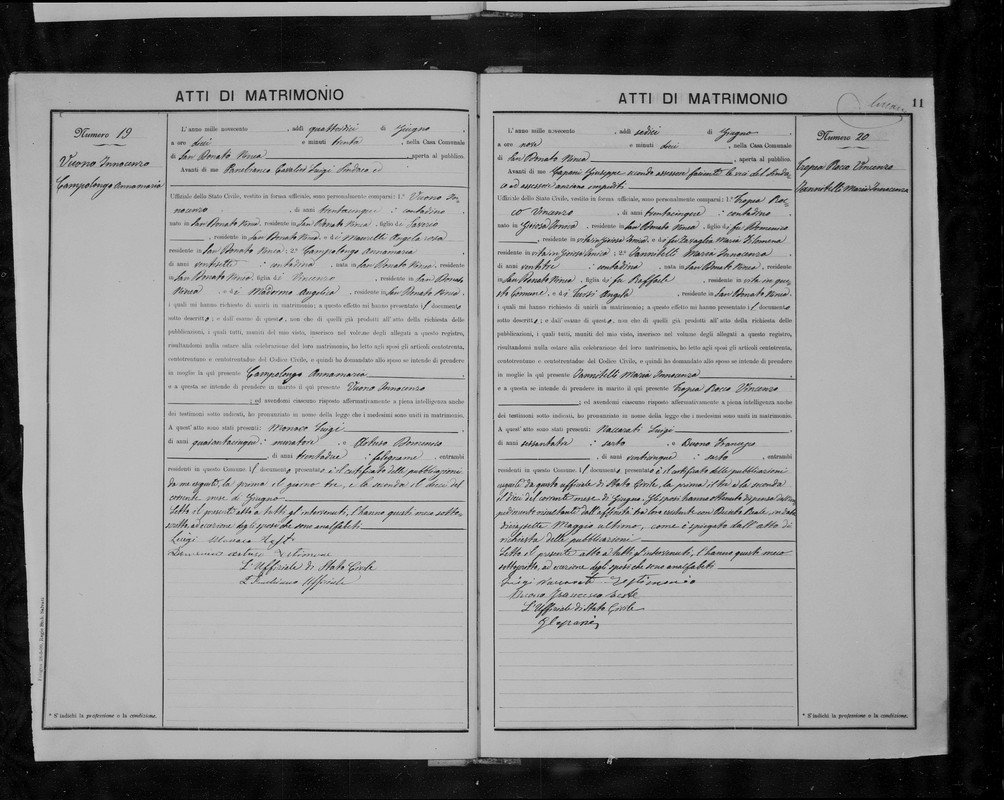 ATTI DI MATRIMONIO
Numero 19
Vuono Innocenzo
Campolongo Annamaria
L'anno mille novecento , addì quattordici di Giugno ,
a ore dieci e minuti trenta , nella Casa Comunale
di San Donato Ninea , aperta al pubblico.
Avanti di me Cavalier Luigi Sindaco ed
Ufficiale dello Stato Civile, vestito in forma ufficiale, sono personalmente comparsi: 1.° Vuono In-
nocenzo , di anni trentacinque : contadino ,
nato in San Donato Ninea, residente in San Donato Ninea, figlio di Saverio
, residente in San Donato Ninea, e di Angela rosa
residente in San Donato Ninea; 2° Campolongo Annamaria ,
di anni ventisette : contadina , nata in San Donato Ninea, residente
in San Donato Ninea, figlia di Vincenzo , residente in San Donato
Ninea , e di Madormo Angelica , residente in San Donato Ninea,
i quali mi hanno richiesto di unirli in matrimonio; a questo effetto mi hanno presentato il documento
sotto descritto; e dall'esame di questo, non che di quelli già prodotti all'atto della richiesta delle
pubblicazioni, i quali tutti, muniti del mio visto, inserisco nel volume degli allegati a questo registro,
risultandomi nulla ostare alla celebrazione del loro matrimonio, ho letto agli sposi gli articoli centotrenta,
centotrentuno e centotrentadue del Codice Civile, e quindi ho domandato allo sposo se intende di prendere
in moglie la qui presente Campolongo Annamaria ,
e a questa se intende di prendere in marito il qui presente Vuono Innocenzo
; ed avendomi ciascuno risposto affermativamente a piena intelligenza anche
dei testimoni sotto indicati, ho pronunziato in nome della legge che i medesimi sono uniti in matrimonio.
A quest'atto sono stati presenti: Monaco Luigi ,
di anni quarantacinque : muratore , e Artuso Domenico
, di anni trentadue : falegname , entrambi
residenti in questo Comune. Il documento presentato è il certificato delle pubblicazioni
da me eseguite, la prima il giorno tre, e la seconda il dieci del
corrente mese di Giugno
Letto il presente atto a tutti gl'intervenuti, l'hanno questi meco sotto-
scritto, ad eccezione degli sposi che sono analfabeti
Luigi Monaco Test.
Domenico Artuso Testimone
L'Uffiziale di Stato Civile
* S'indichi la professione o la condizione.
ATTI DI MATRIMONIO
11
L'anno mille novecento , addì sedici di Giugno ,
a ore nove e minuti dieci , nella Casa Comunale
di San Donato Ninea , aperta al pubblico.
Avanti di me Capani Giuseppe secondo assessore facente le veci del Sinda-
co ed assessore anziano impediti
Ufficiale dello Stato Civile, vestito in forma ufficiale, sono personalmente comparsi: 1.° Tropea Roc-
co Vincenzo , di anni trentacinque : contadino ,
nato in , residente in San Donato Ninea, figlio di fu Domenico
, residente in vita in , e di fu Maria Filomena
residente in vita in ; 2° Iannitelli Maria Innocenza ,
di anni ventitre : contadina , nata in San Donato Ninea, residente
in San Donato Ninea, figlia di fu Raffaele , residente in vita in que-
sto Comune, e di Angela , residente in San Donato Ninea,
i quali mi hanno richiesto di unirli in matrimonio; a questo effetto mi hanno presentato il documento
sotto descritto; e dall'esame di questo, non che di quelli già prodotti all'atto della richiesta delle
pubblicazioni, i quali tutti, muniti del mio visto, inserisco nel volume degli allegati a questo registro,
risultandomi nulla ostare alla celebrazione del loro matrimonio, ho letto agli sposi gli articoli centotrenta,
centotrentuno e centotrentadue del Codice Civile, e quindi ho domandato allo sposo se intende di prendere
in moglie la qui presente Iannitelli Maria Innocenza ,
e a questa se intende di prendere in marito il qui presente Tropea Rocco Vincenzo
; ed avendomi ciascuno risposto affermativamente a piena intelligenza anche
dei testimoni sotto indicati, ho pronunziato in nome della legge che i medesimi sono uniti in matrimonio.
A quest'atto sono stati presenti: Naccarati Luigi ,
di anni sessantatre : sarto , e Buono Francesco
, di anni venticinque : sarto , entrambi
residenti in questo Comune. Il documento presentato è il certificato delle pubblicazioni
eseguite da questo ufficiale di Stato Civile, la prima il tre e la seconda
il dieci del corrente mese di Giugno. Gli sposi hanno ottenuto dispensa dall'im-
pedimento risultante dall'affinità tra loro esistente con Decreto Reale, in data
diciassette Maggio ultimo, come è spiegato dall'atto di
richiesta delle pubblicazioni
Letto il presente atto a tutti gl'intervenuti, l'hanno questi meco
sottoscritto, ad eccezione degli sposi che sono analfabeti
Luigi Naccarati Testimonio
Buono Francesco Teste
L'Uffiziale di Stato Civile
G Capani
Numero 20
Tropea Rocco Vincenzo
Iannitelli Maria Innocenza
* S'indichi la professione o la condizione.